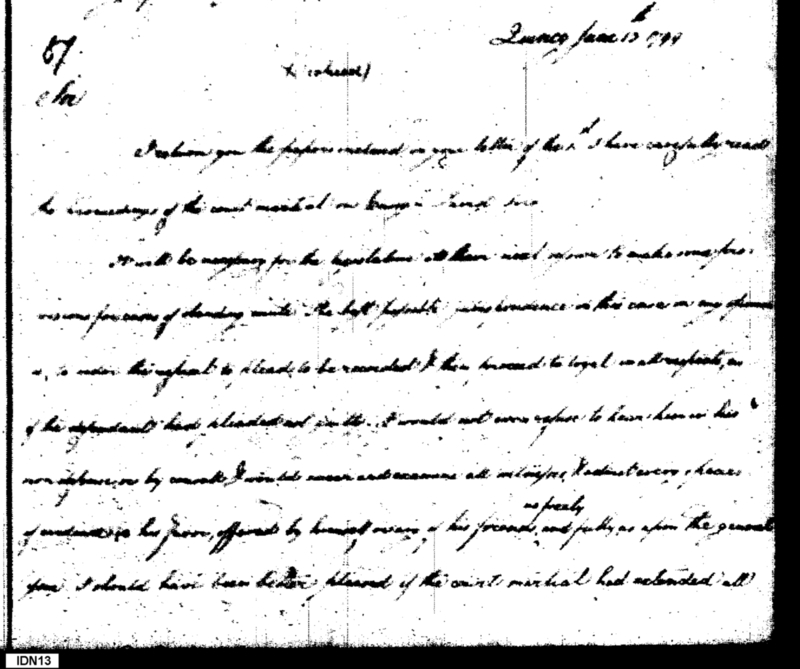 Quincy June 13th 1799
57
Sir
I return you the papers inclosed in your letter of the I have carefully read
the proceedings of the court martial on
It will be necessary for the legislature at their next session to make some pro-
visions for cases of standing mute. The best possible jurisprudence in this case in my opinion
is, to order the refusal to plead, to be recorded & then proceed to trial in all respects, as
if the defendant had pleaded not guilty. I would not even refuse to hear him in his
own defence, or by council, I would swear and examine all witnesses, & admit every species
of evidence in his favor, offered by himself or any of his friends,
as freely
and fully as upon the general
issue I should have been better pleased if the court martial had extended all
IDN13